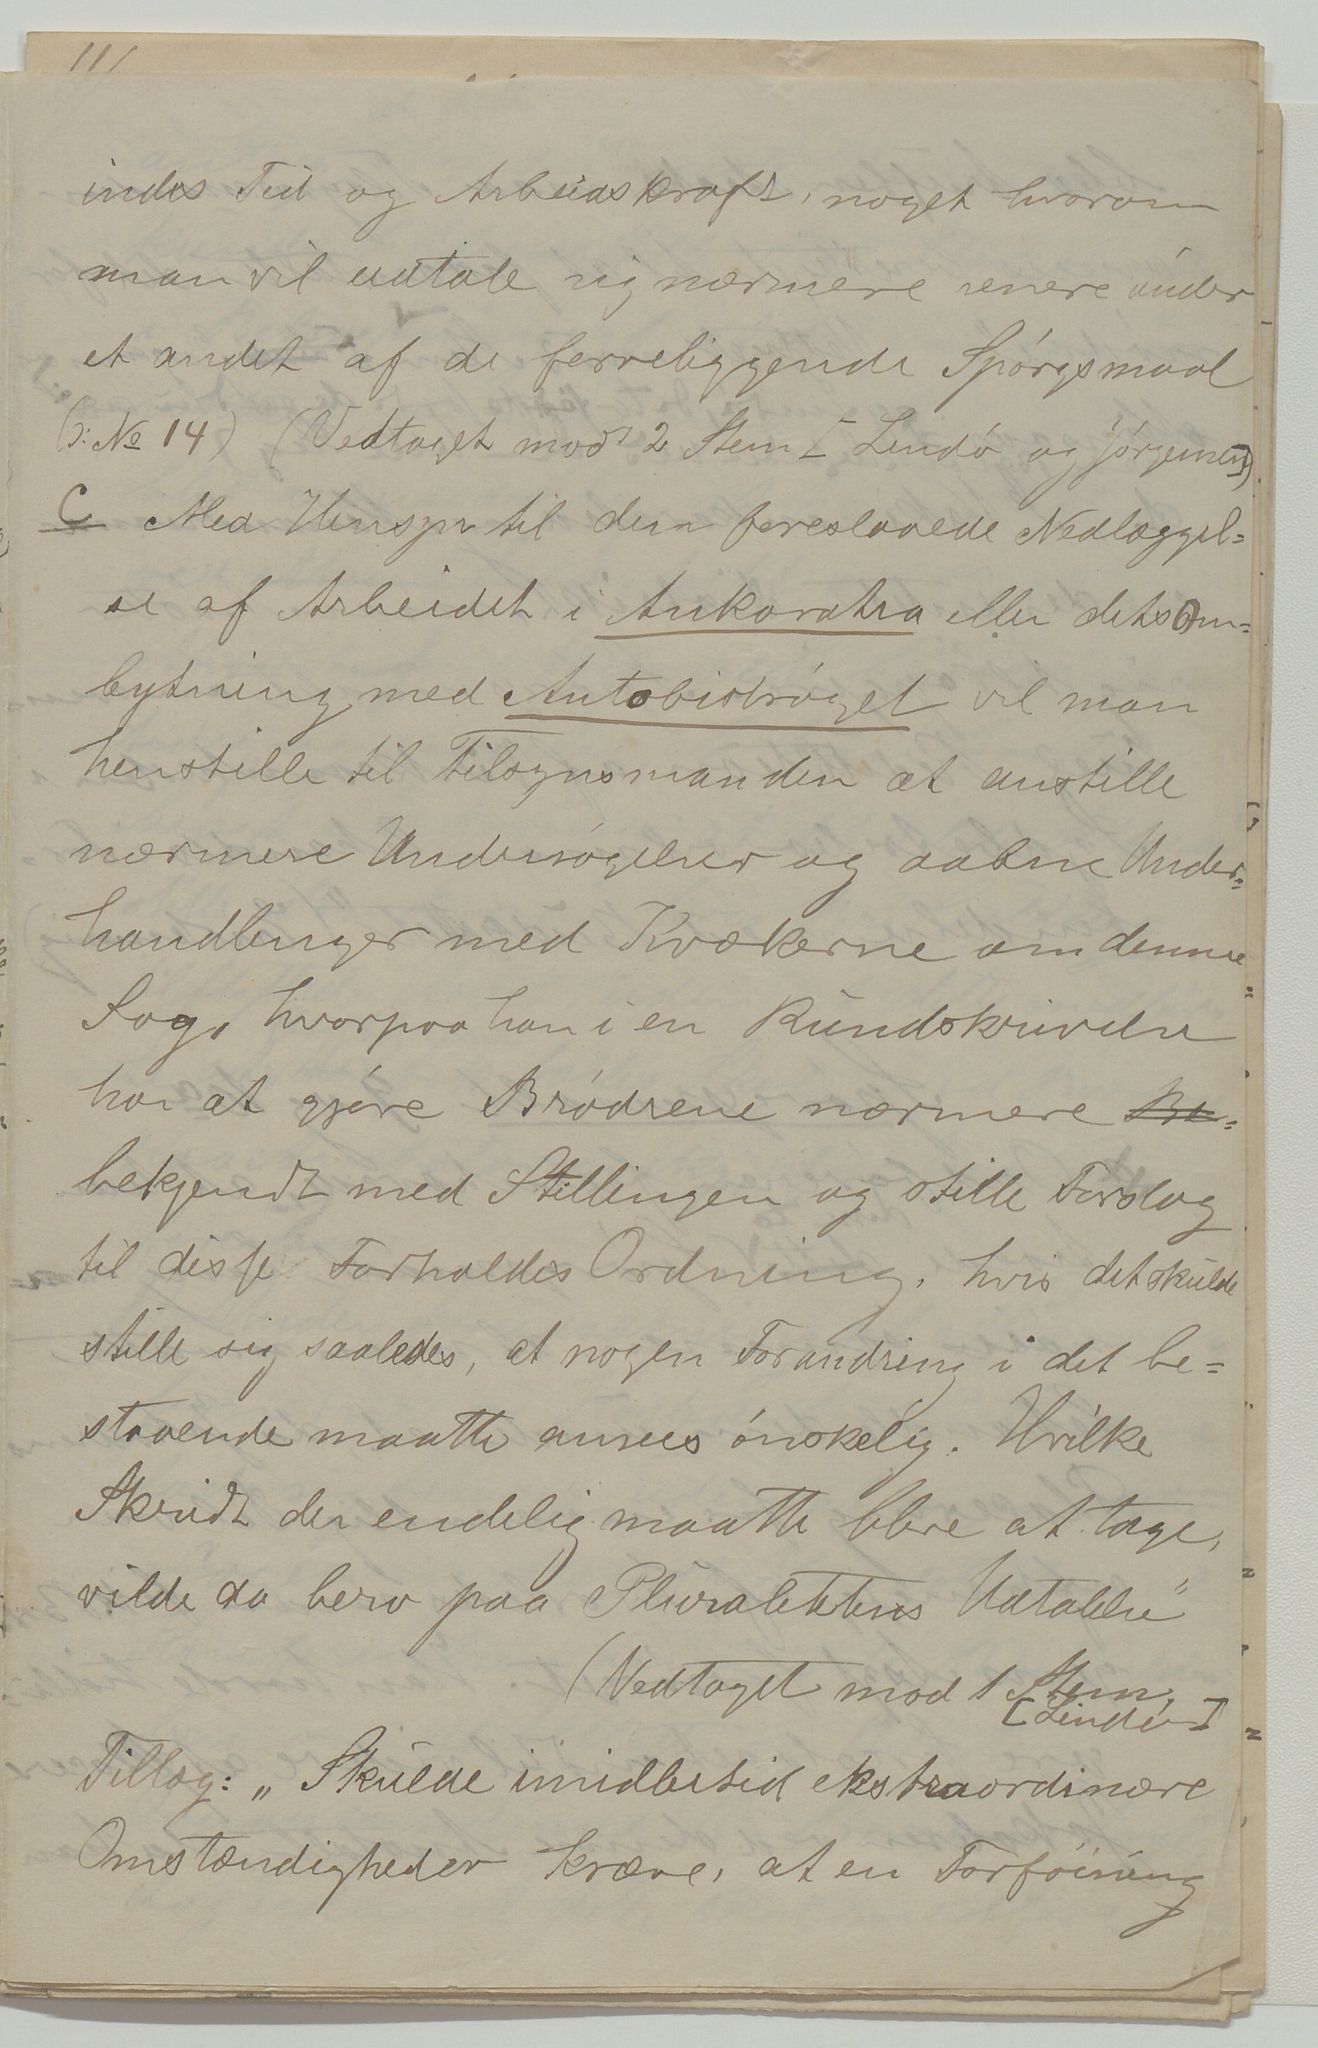 111
indes Tid og Arbeidskraft, noget hvorom
man vil udtale sig nærmere senere únder
et andet af de foreliggende Spórgsmaal
(ɔ: № 14) (Vedtaget mod 2 Stem [Lindó og Jórgensen])
C Med Hensyn til den foreslaaede Nedlæggel=
se af Arbeidet i Ankaratra eller dets Om=
bytning med Antobistróget vil man
henstille til Tilsynsmanden at anstille
nærmere Undersógelser og aabne Under=
handlinger med Kvækerne om denne
Sag, hvorpaa han i en Rúndskrivelse
har at gjóre Bródrene nærmere Be=
bekjendt med Stillingen og stille Forslag
til disse Forholdes Ordning, hvis det skúlde
stille sig saaledes, at nogen Forandring i det be=
staaende maatte ansees ónskelig. Hvilke
Skridt der endelig maatte blive at tage,
vilde da bero paa Plúralitetens Udtalelse"
(Vedtaget mod 1 Stem.
[Lindó])
Tillæg: „Skúlde imidlertid ekstraordinære
Omstændigheder kræve, at en Forfóining